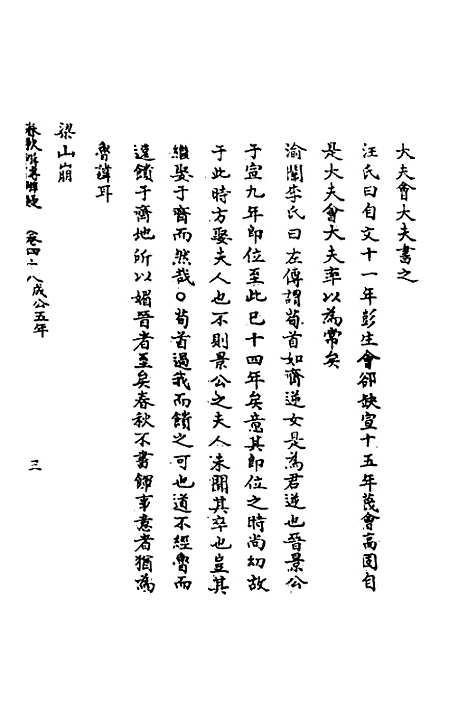 大夫會大夫書之
汪氏曰自文十一年彭生會郤缺宣十五年蔑會高固自
是大夫會大夫率以為常矣
渝關李氏曰左傳謂荀首如齊逆女是為君逆也晉景公
于宣九年即位至此已十四年矣竟其即位之時尚幼故
于此時方娶夫人也不則景公之夫人未聞其卒也豈其
繼娶于齊而然哉○荀首過我而饋之可也道不經魯而
遠饋于齊地所以媚晉者至矣春秋不書餫事意者猶為
魯諱耳
梁山崩
春秋 卷四十八成公五年
三